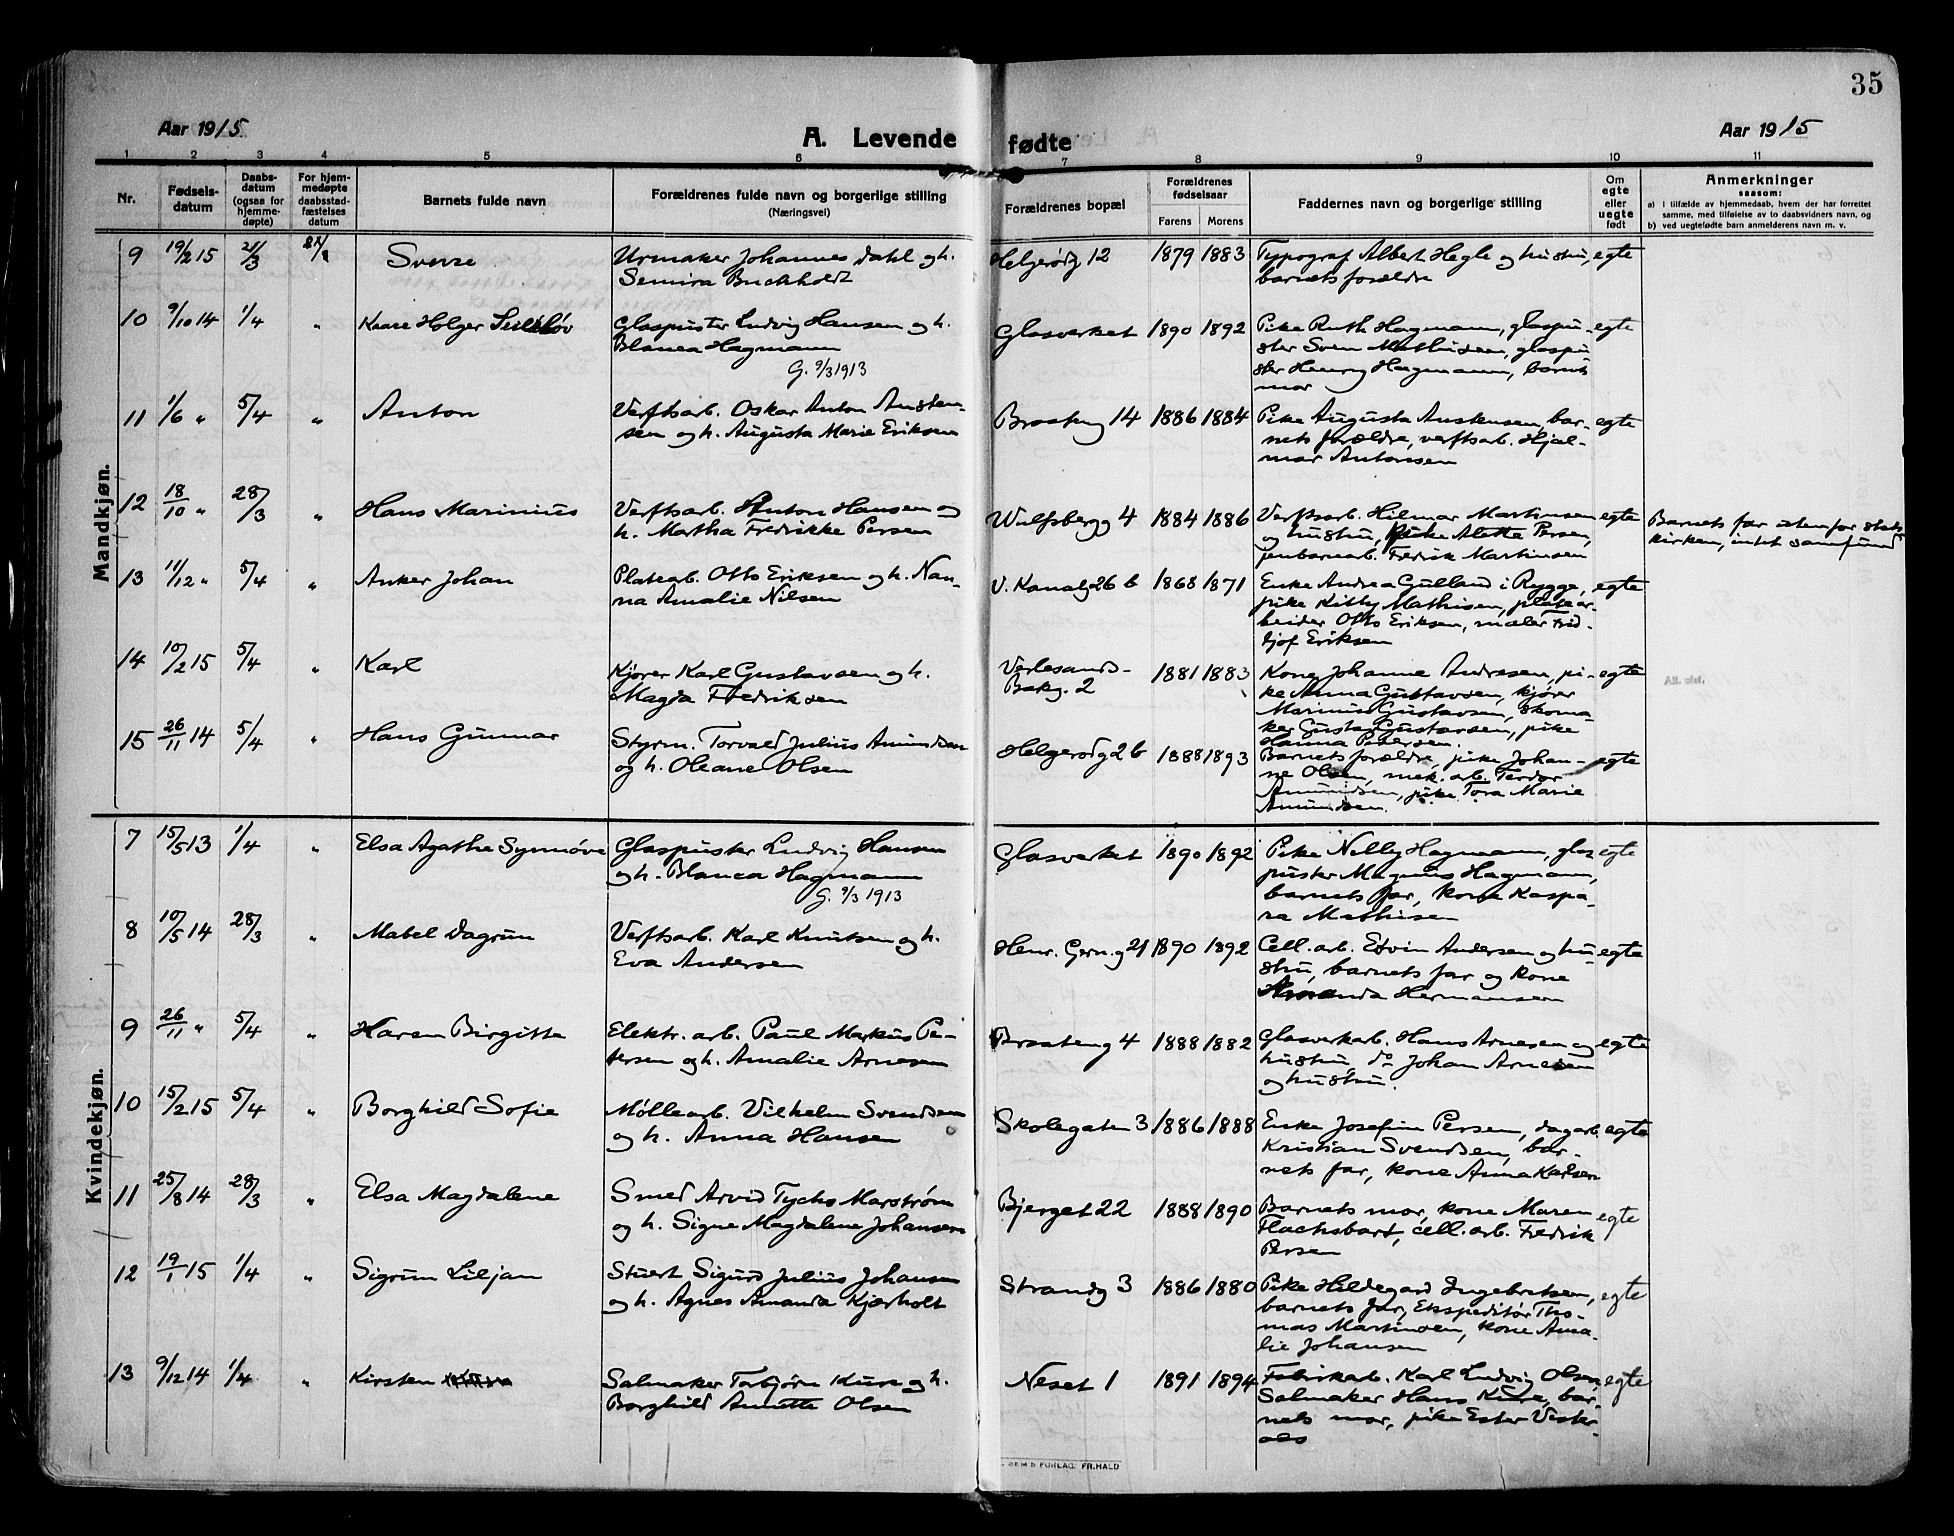 35
Aar 1915
A. Levende fødte
Aar 1915
1 2 3 4 5 6 7 8 9 10 11
Nr.
Fødsels-
datum
Daabs-
datum
(ogsaa for
hjemme-
døpte)
For hjem-
medøpte
daabsstad-
fæstelses
datum
Barnets fulde navn
Forældrenes fulde navn og borgerlige stilling
(Næringsvei)
Forældrenes bopæl
Forældrenes
fødselsaar
Farens Morens
Faddernes navn og borgerlige stilling
Om
egte
eller
uegte
født
Anmerkninger
saasom:
a) i tilfælde av hjemmedaab, hvem der har forrettet
samme, med tilføielse av to daabsvidners navn, og
b) ved uegtefødte barn anmelderens navn m. v.
Mandkjøn.
9 19/2 15 21/3 Sverre
Urmaker Johannes Dahl og h.
Semira Buchholdt
Helgerødg 12 1879 1883
Typograf Albert Hegle og hustru,
barnets forældre
egte
10 9/10 14 1/4 " Kaare Holger
Glaspuster Ludvig Hansen og h.
Blanca Hagmann
G. 9/3 1913
Glasverket 1890 1892
Pike Ruth Hagmann, glaspu-
ster Sven Mathisen, glaspu
ster Henry Hagmann, barnets
mor
egte
11 1/6 " 5/4 " Anton
Verftsarb. Oskar Anton Austen-
sen og h. Augusta Marie Eriksen
Braateng 14 1886 1884
Pike Augusta Austensen, bar-
nets forældre, verftsarb. Hjal-
mar Antonsen
egte
12 18/10 " 28/3 " Hans Marinius
Verftsarb. Anton Hansen og
h. Martha Fredrikke Persen
Wulfsbergg 4 1884 1886
Verftsarb. Hilmar Martinsen
og hustru, pike Alette Persen,
jernbanearb. Fredrik Martinsen
egte
Barnets far utenfor stats
kirken, intet samfund
13 11/12 " 5/4 " Anker Johan
Platearb. Otto Eriksen og h. Nan-
na Amalie Nilsen
V. Kanalg 26 b 1868 1871
Enke Andrea Gulland i Rygge,
pike Kitty Mathisen, platear-
beider Otto Eriksen, maler Frid-
tjof Eriksen
egte
14 10/2 15 5/4 " Karl
Kjører Karl Gustavsen og h.
Magda Fredriksen
Verlesands-
Bakg. 2
1881 1883
Kone Johanne Andresen, pi-
ke Anna Gustavsen, kjører
Marinius Gustavsen, skoma-
ker Gustav Gustavsen, pike
Hanna Petersen.
egte
Att. utst.
15 26/11 14 5/4 " Hans Gunnar
Styrm. Torvald Julius Amundsen
og h. Oleane Olsen
Helgerødg 26 1888 1893
Barnets forældre, pike Johan-
ne Olsen, mek. arb. Terdor
Amundsen, pike Tora Marie
Amundsen.
egte
Kvindekjøn.
7 15/5 13 1/4 " Elsa Agathe Synnøve
Glaspuster Ludvig Hansen
og h. Blanca Hagmann
G. 9/3 1913
Glasverket 1890 1892
Pike Nelly Hagmann, glas
puster Magnus Hagmann,
barnets far, kone Kaspa-
ra Mathisen
egte
8 10/5 14 28/3 " Mabel Dagrun
Verftsarb. Karl Knutsen og h.
Eva Andersen
Henr. Gern. g 21 1890 1892
Cell. arb. Edvin Andersen og hu-
stru, barnets far og kone
Hermansen
egte
9 26/11 " 5/4 " Karen Birgitte
Elektr. arb. Paul Markus Pe-
tersen og h. Amalie Arnesen
Braateng 4 1888 1882
Glasverkarb. Hans Arnesen og
hustru, do Johan Arnesen
og hustru.
egte
10 15/2 15 5/4 " Borghild Sofie
Møllearb. Vilhelm Svendsen
og h. Anna Hansen
Skolegaten 3 1886 1888
Enke Josefine Persen, dagarb.
Kristian Svendsen, bar-
nets far, kone Anna Karlsen
egte
11 25/8 14 28/3 " Elsa Magdalene
Smed Arvid Tycho Marstrøm
og h. Signe Magdalene Johansen
Bjerget 22 1888 1890
Barnets mor, kone Maren
Flachsbart, cell. arb. Fredrik
Persen
egte
12 19/1 15 1/4 " Sigrun Liljan
Stuert Sigurd Julius Johansen
og h. Agnes Amanda Kjærholt
Strandg 3 1886 1880
Pike Hildegard Ingebretsen,
barnets far, Ekspeditør Tho-
mas Martinsen, kone Ama-
lie Johansen
egte
13 9/12 14 1/4 " Kirsten
Salmaker Torbjørn Kure og h.
Borghild Annette Olsen
Neset 1 1891 1894
Fabrikarb. Karl Ludvig Olsen,
Salmaker Hans Kure, bar-
nets mor, pike Ester
egte
FORLAG. FR. HALD